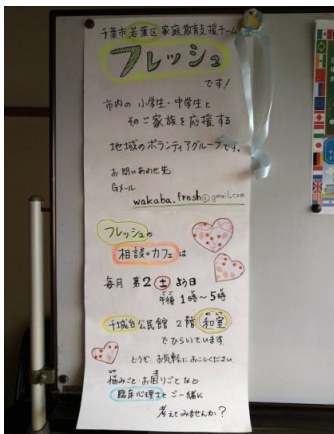 千葉市若葉区家庭教育支援チーム
フレッシュ
です!
市内の 小学生・中学生と
そのご家族を応援する
地域のボランティアグループです。
お問いあわせ先
Gメール
wakaba.fresh@gmail.com
フレッシュの
相談・カフェは
毎月 第2(土)よう日
午後 1時~5時
千城台公民館 2階 和室
でひらいています
どうぞ お気軽に おこしください
悩みごと・お困りごとなど
臨床心理士とご一緒に
考えてみませんか?